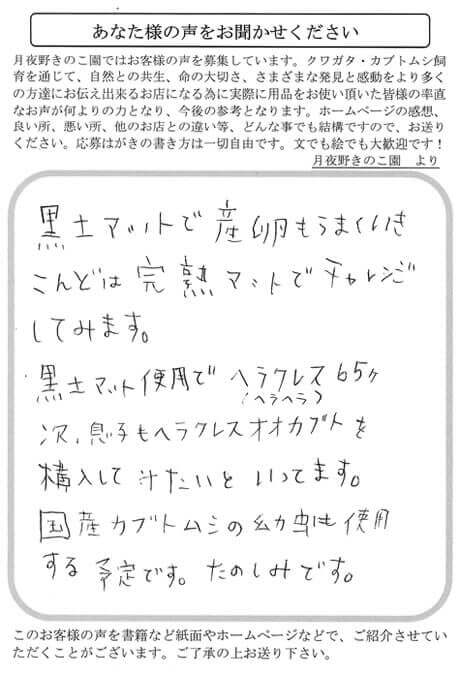 あなた様の声をお聞かせください
月夜野きのこ園ではお客様の声を募集しています。クワガタ・カブトムシ飼
育を通じて、自然との共生、命の大切さ、さまざまな発見と感動をより多く
の方達にお伝え出来るお店になる為に実際に用品をお使い頂いた皆様の率直
なお声が何よりの力となり、今後の参考となります。ホームページの感想、
良い所、悪い所、他のお店との違い等、どんな事でも結構ですので、お送り
ください。応募はがきの書き方は一切自由です。文でも絵でも大歓迎です！
月夜野きのこ園　より
黒土マットで産卵もうまくいき
こんどは完熟マットでチャレンジ
してみます。
黒土マット使用でヘラクレス65ヶ
（ヘラヘラ）
次、息子もヘラクレスオオカブトを
購入して
たいといってます。
国産カブトムシの幼虫も使用
する予定です。たのしみです。
このお客様の声を書籍など紙面やホームページなどで、ご紹介させてい
ただくことがございます。ご了承の上お送り下さい。